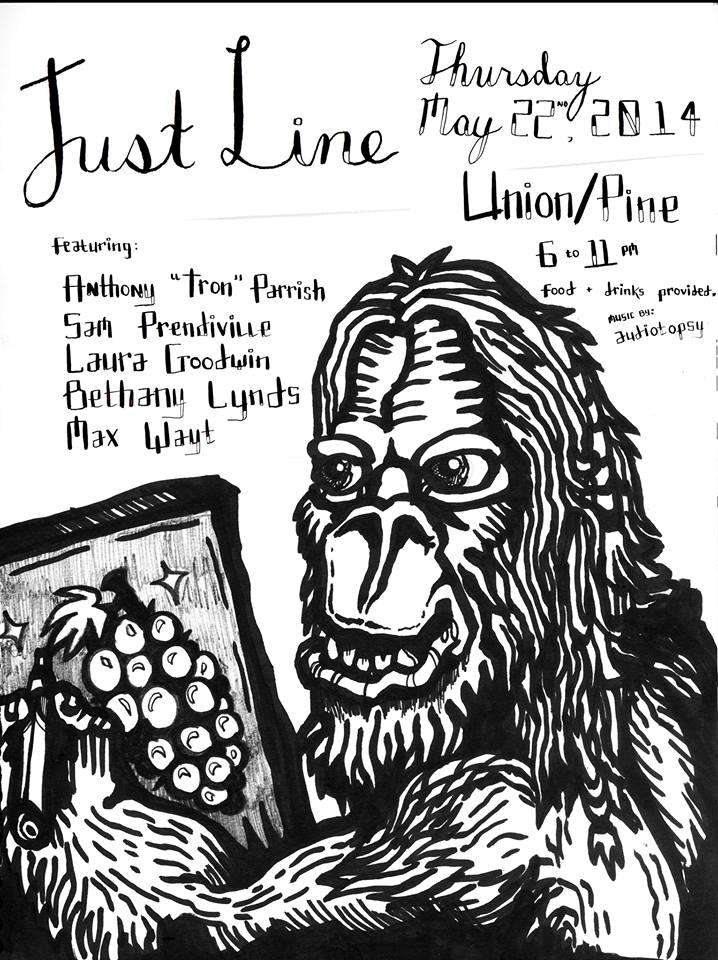 Just Line
Thursday
May 22ND, 2014
Union/Pine
6 to 11 PM
food + drinks provided.
MUSIC BY:
audiotopsy
Featuring:
Anthony "Tron" Parrish
Sam Prendiville
Laura Goodwin
Bethany Lynds
Max Wayt